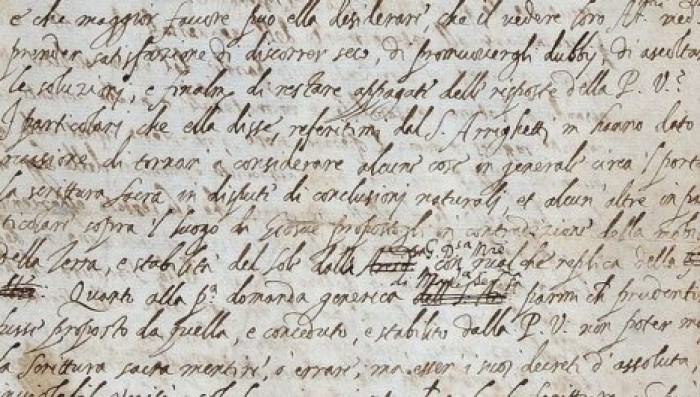 e che maggior favore può ella desiderare, che il vedere loro Al.^ze med
prender satisfazione di discorrer seco, di promuovergli dubbij, di ascoltar
le soluzioni, e finalm.^e di restare appagate delle risposte della P. V.?
I particolari che ella disse, referitimi dal S. Arrighetti, m'hanno dato
di tornar a considerare alcune cose in generale circa 'l port
la scrittura sacra in dispute di conclusioni naturali, et alcun' altre in pa
ticolari sopra 'l luogo di Giosuè propostogli in contradizione della mob
della Terra, e stabilità del Sole dalla G. D.^sa M.^re con qualche replica della
Quanto alla p.^a domanda generica di M.^ma Ser.^ma parmi ch' prudenti
fusse proposto da quella, e conceduto, e stabilito dalla P. V. non poter m
la scrittura sacra mentire, o errare, ma esser i suoi decreti d'assoluta